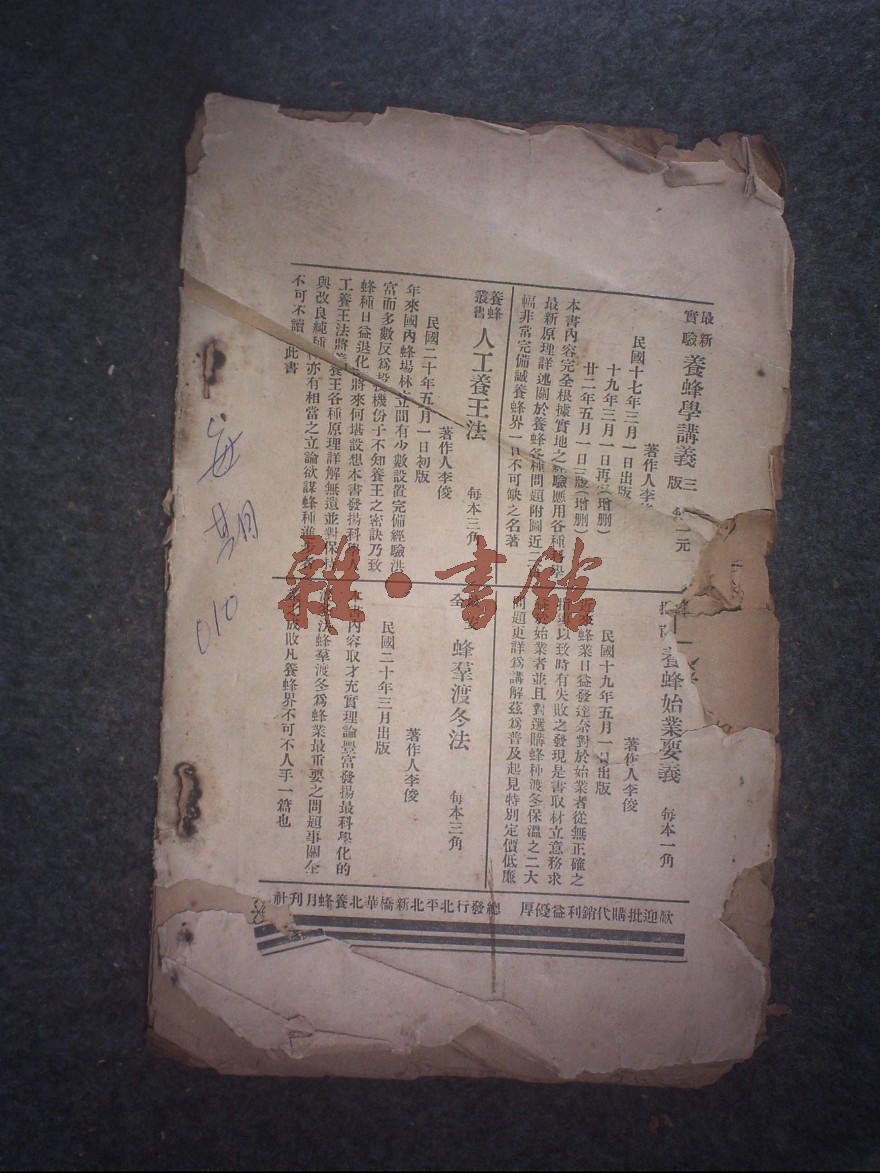 最新
實驗
養蜂學講義
三
版
元
著作人李
民國十七年三月一日出版
十九年三月一日再 (增删)
廿二年五月一日三版(增删)
本書內容完全根據實地之經驗應用各種科學
最新原理詳述關於養蜂各種問題附圖近二
幅非常完備誠養蜂界一日不可缺之名著
養蜂
叢書
人工養王法
每本三角
著作人李俊
民國二十年五月一日初版
年來國內蜂場林立間有少數設置完備經驗洪
富而多數反爲投機份子不知養王之密訣乃致
蜂種日益退化 將來何堪設想本書發揚科學人
工養王法將 養王各種原理詳解無遺並對保持
與改良純種 亦有相當之立論欲謀蜂種進
不可不讀 此書
養蜂始業要義
每本一角
著作人李俊
民國十九年五月一日出版
近來蜂業日益發達奈對於始業者從無正確之
指 以致時有失敗之發現是書取材立意務求
於始業者並且對選購蜂種渡冬保溫之二大
問題更詳爲講解茲爲普及起見特別定價低廉
全
蜂羣渡冬法
每本三角
著作人李俊
民國二十年三月出版
本書內容取才充實理論豐富發揚最科學化的
法蜂羣渡冬爲蜂業最重要之問題事關全
成敗凡養蜂界不可不人手一篇也
歡迎批購代銷利益優厚 總發行北平北新橋華北養蜂月刊社
每期
010
雜·書館